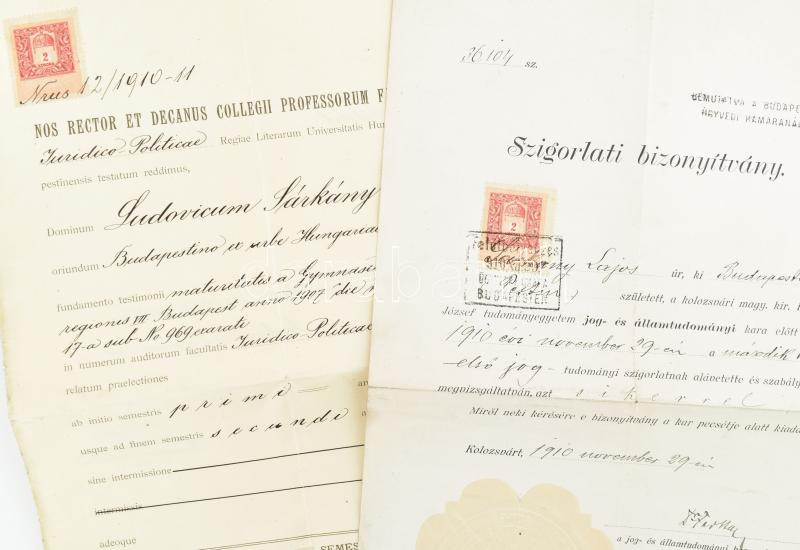 2
Nrus 12/1910-11
NOS RECTOR ET DECANUS COLLEGII PROFESSORUM F
Juridico-Politicae Regiae Literarum Universitatis Hu
pestinensis testatum reddimus,
Dominum Ludovicum Sárkány
oriundum Budapestino ex urbe Hungariae
fundamento testimonii maturitatis a Gymnasi
regiones VII Budapest anno 1907 die
17-a sub No 969 exarate
in numerum auditorum facultatis Juridico-Politicae
relatum praelectiones
ab initio semestris primi
usque ad finem semestris secundi
sine intermissione
intermissis
adeoque
SEMES
36104 sz.
BEMUTATVA A BUDAPE
ÜGYVÉDI KAMARANÁL
Szigorlati bizonyítvány.
2
Lajos úr, ki Budapest
BUDAPESTEN
született, a kolozsvári magy. kir.
József tudományegyetem jog- és államtudományi kara előtt
1910 évi november 29-én a második
első jog- tudományi szigorlatnak alávetette és szabály
megvizsgáltatván, azt sikerrel
Miről neki kérésére e bizonyítvány a kar pecsétje alatt kiada
Kolozsvárt, 1910 november 29-én
a jog- és államtudományi